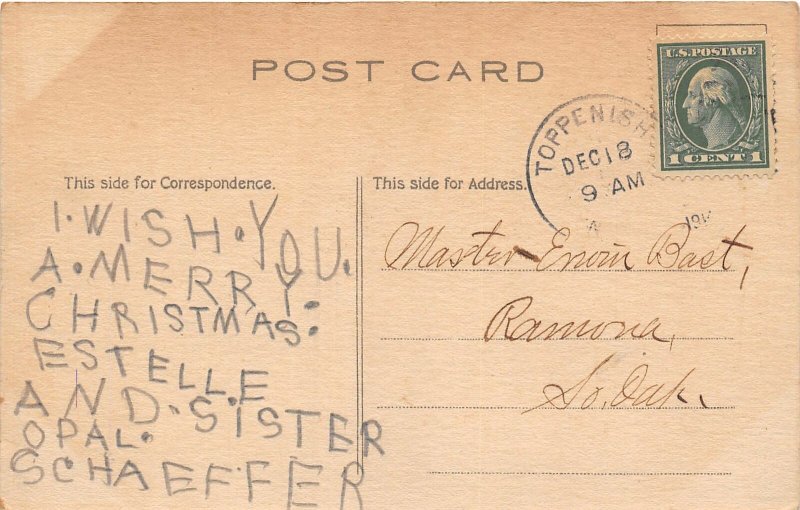 POST CARD
U.S. POSTAGE
1 CENT 1
TOPPENISH
DEC 18
9 AM
This side for Correspondence.
This side for Address.
I·WISH·YOU.
A·MERRY·
CHRISTMAS·
ESTELLE
AND·SISTER
OPAL·
SCHAEFFER
Master Erwin Bast,
Ramona,
So. Dak.